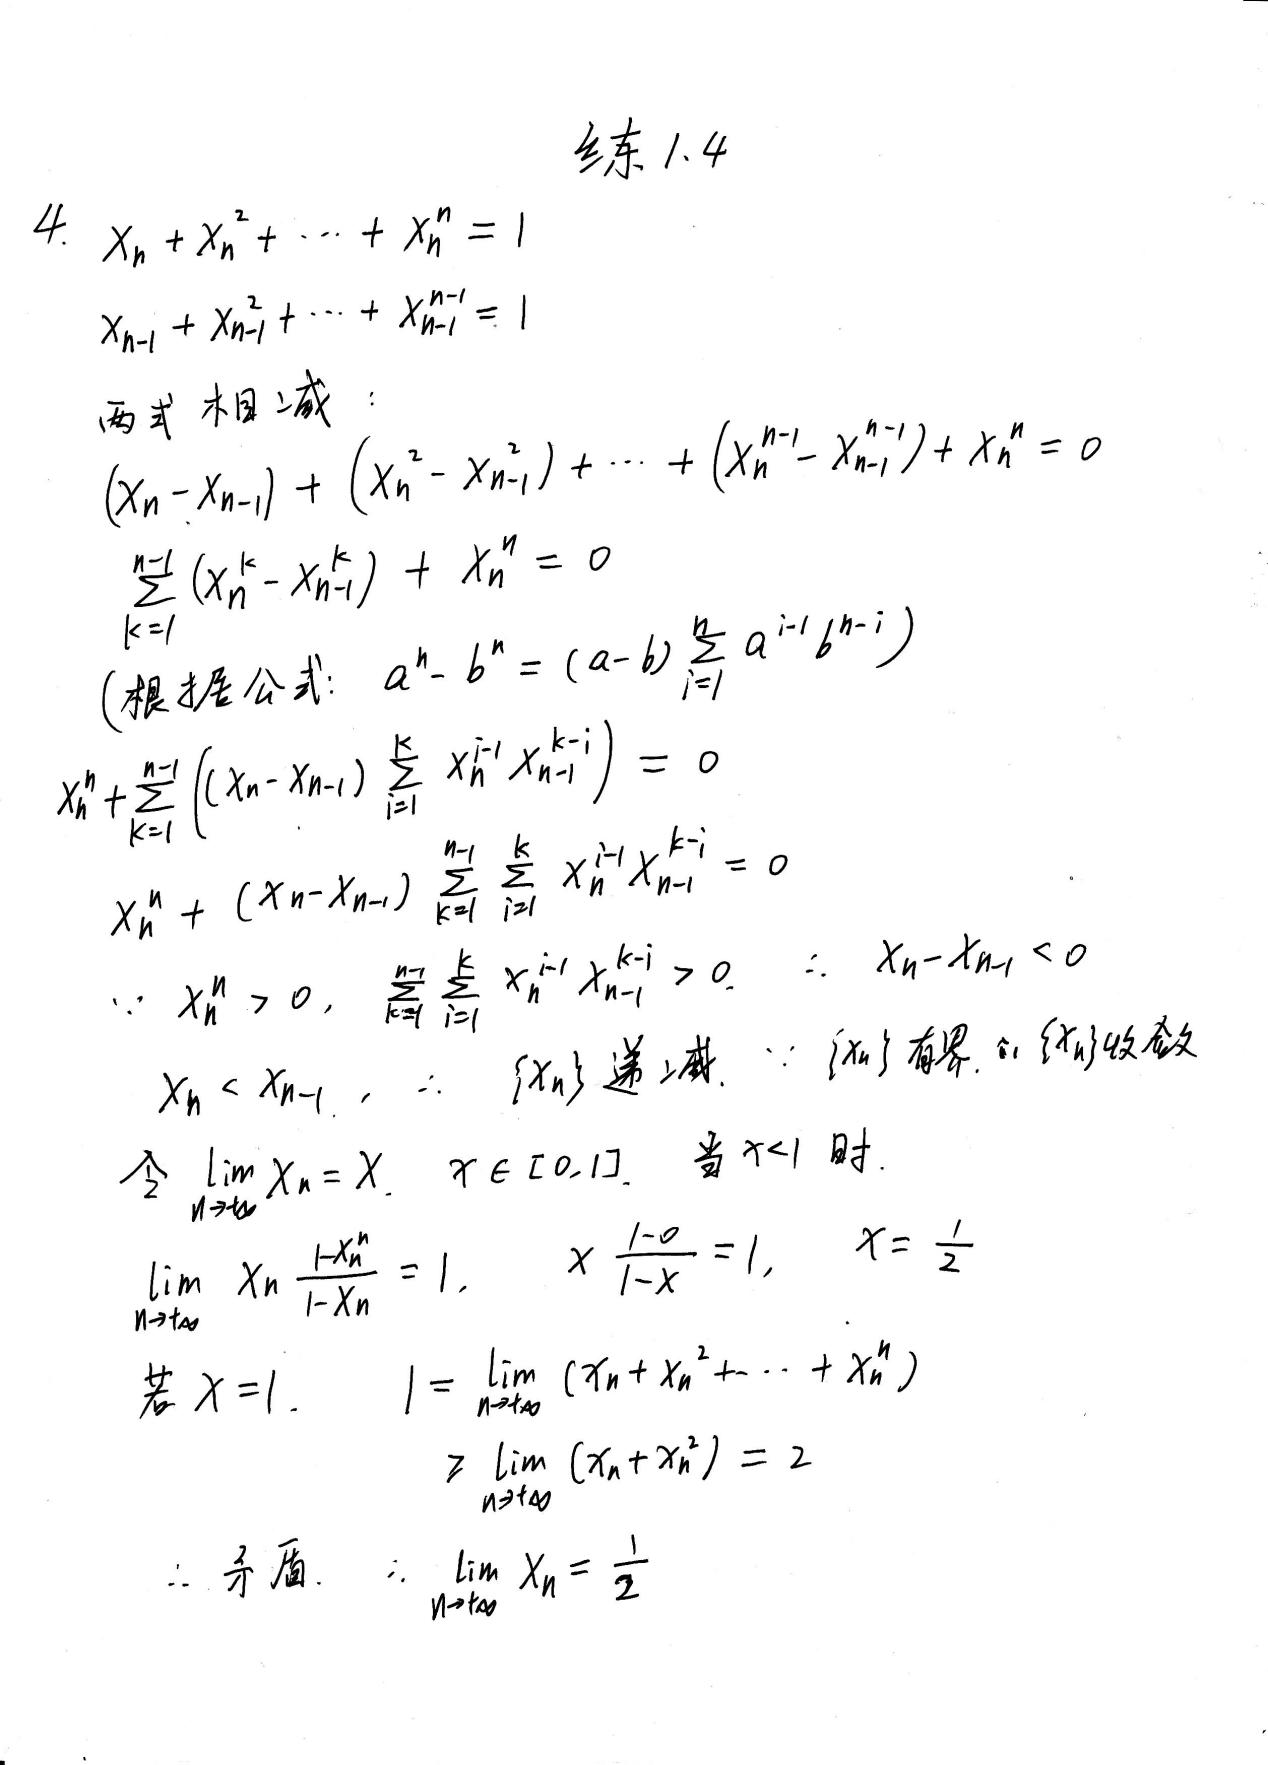 练1.4
4. xₙ + xₙ² + ⋯ + xₙⁿ = 1
xₙ₋₁ + xₙ₋₁² + ⋯ + xₙ₋₁ⁿ⁻¹ = 1
两式相减:
(xₙ - xₙ₋₁) + (xₙ² - xₙ₋₁²) + ⋯ + (xₙⁿ⁻¹ - xₙ₋₁ⁿ⁻¹) + xₙⁿ = 0
∑_{k=1}^{n-1} (xₙᵏ - xₙ₋₁ᵏ) + xₙⁿ = 0
(根据公式: aⁿ - bⁿ = (a-b) ∑_{i=1}^{n} a^{i-1} b^{n-i})
xₙⁿ + ∑_{k=1}^{n-1} ((xₙ - xₙ₋₁) ∑_{i=1}^{k} xₙ^{i-1} xₙ₋₁^{k-i}) = 0
xₙⁿ + (xₙ - xₙ₋₁) ∑_{k=1}^{n-1} ∑_{i=1}^{k} xₙ^{i-1} xₙ₋₁^{k-i} = 0
∵ xₙⁿ > 0, ∑_{k=1}^{n-1} ∑_{i=1}^{k} xₙ^{i-1} xₙ₋₁^{k-i} > 0. ∴ xₙ - xₙ₋₁ < 0
xₙ < xₙ₋₁, ∴ {xₙ} 递减. ∵ {xₙ} 有界. ∴ {xₙ} 收敛
令 lim_{n→+∞} xₙ = x. x ∈ [0,1]. 当 x<1 时.
lim_{n→+∞} xₙ (1-xₙⁿ)/(1-xₙ) = 1, x (1-0)/(1-x) = 1, x = 1/2
若 x=1. 1 = lim_{n→+∞} (xₙ + xₙ² + ⋯ + xₙⁿ)
≥ lim_{n→+∞} (xₙ + xₙ²) = 2
∴ 矛盾. ∴ lim_{n→+∞} xₙ = 1/2